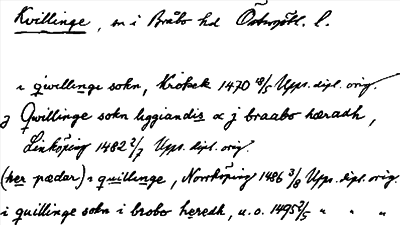 Kvillinge, sn i Bråbo hd Östergötl. l.
i qwillinge sokn, Krokek 1470 18/5 Upps. dipl. orig.
j Qwillinge sokn liggiandis oc j braabo hæradh,
Linköping 1482 2/7 Upps. dipl. orig.
(her pædar) i quillinge, Norrköping 1486 3/8 Upps. dipl. orig.
i quillinge sokn i brobo heredh, u.o. 1495 2/5 " " "